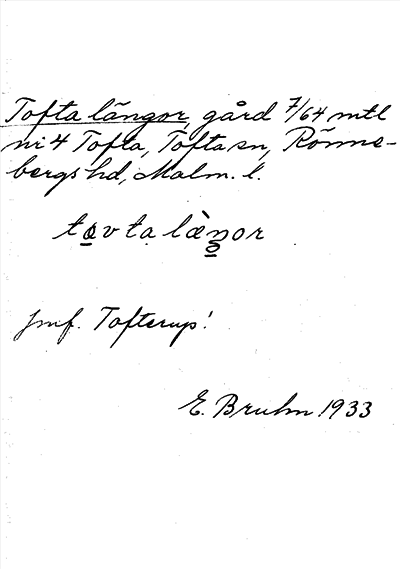 Tofta längor, gård 7/64 mtl
nr 4 Tofta, Tofta sn, Rönne-
bergs hd, Malm. l.
tovta lænor
Jmf. Tofterup!
E. Bruhn 1933